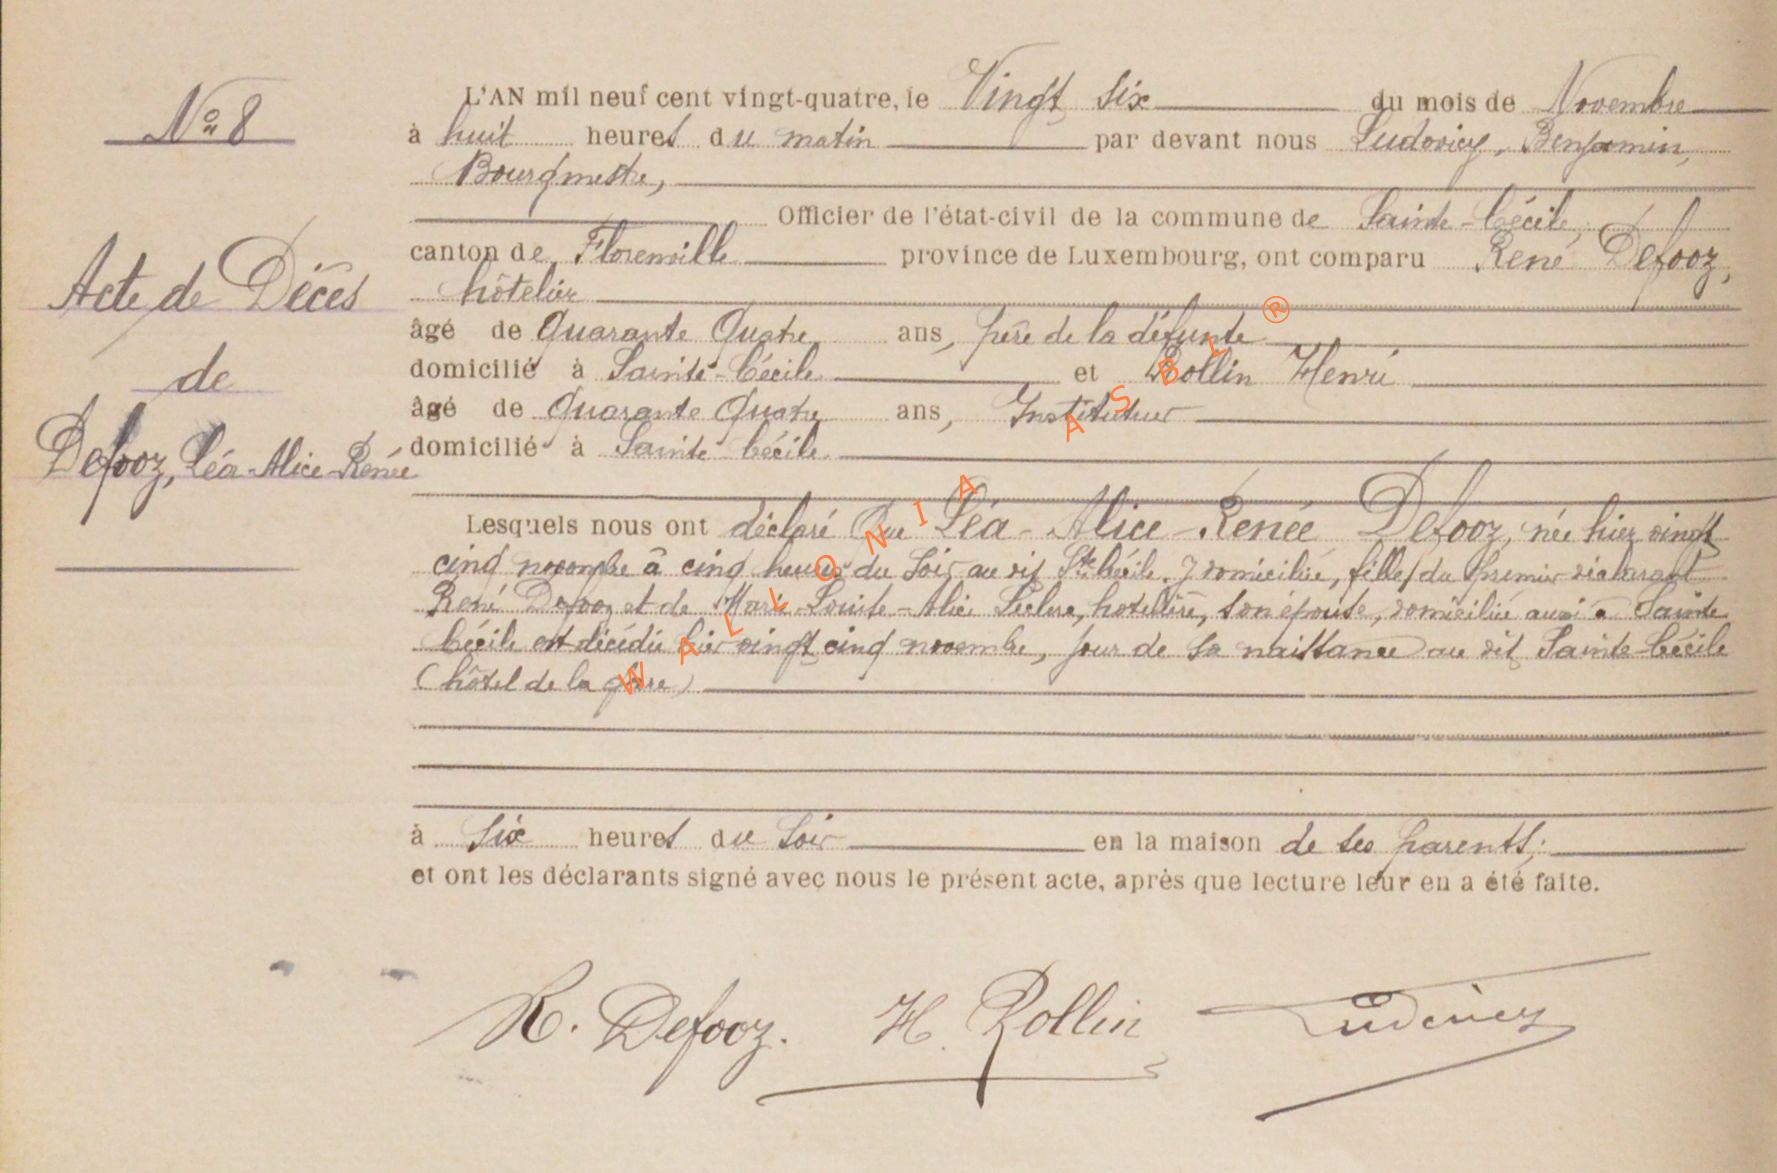 Nº 8
Acte de Décès
de
Defooz, Léa-Alice-Renée
L'AN mil neuf cent vingt-quatre, le Vingt six du mois de Novembre
à huit heures du matin par devant nous Ludovicy, Benjamin,
Bourgmestre,
Officier de l'état-civil de la commune de Sainte-Cécile,
canton de Florenville province de Luxembourg, ont comparu René Defooz,
hôtelier
âgé de Quarante Quatre ans, père de la défunte
domicilié à Sainte-Cécile et Rollin Henri
âgé de Quarante Quatre ans, Instituteur
domicilié à Sainte Cécile
Lesquels nous ont déclaré Que Léa-Alice-Renée Defooz, née hier vingt
cinq novembre à cinq heures du soir au dit Ste Cécile, y domiciliée, fille du premier déclarant
René Defooz et de Marie-Louise-Alice hotelière, son épouse, domiciliée aussi à Sainte
Cécile est décédée hier vingt cinq novembre, jour de sa naissance au dit Sainte-Cécile
(hôtel de la gare)
à six heures du soir en la maison de ses parents;
et ont les déclarants signé avec nous le présent acte, après que lecture leur en a été faite.
R. Defooz. H. Rollin Ludovicy
WALLONIA ASBL ®